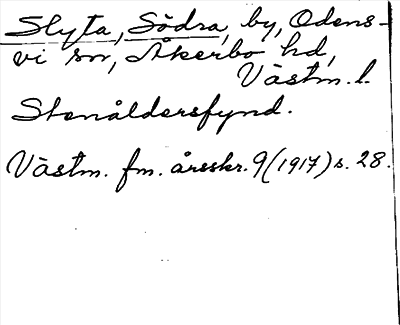 Slyta, Södra, by, Odens-
vi sn, Åkerbo hd,
Västm. l.
Stenåldersfynd.
Västm. fm. årsskr. 9 (1917) s. 28.